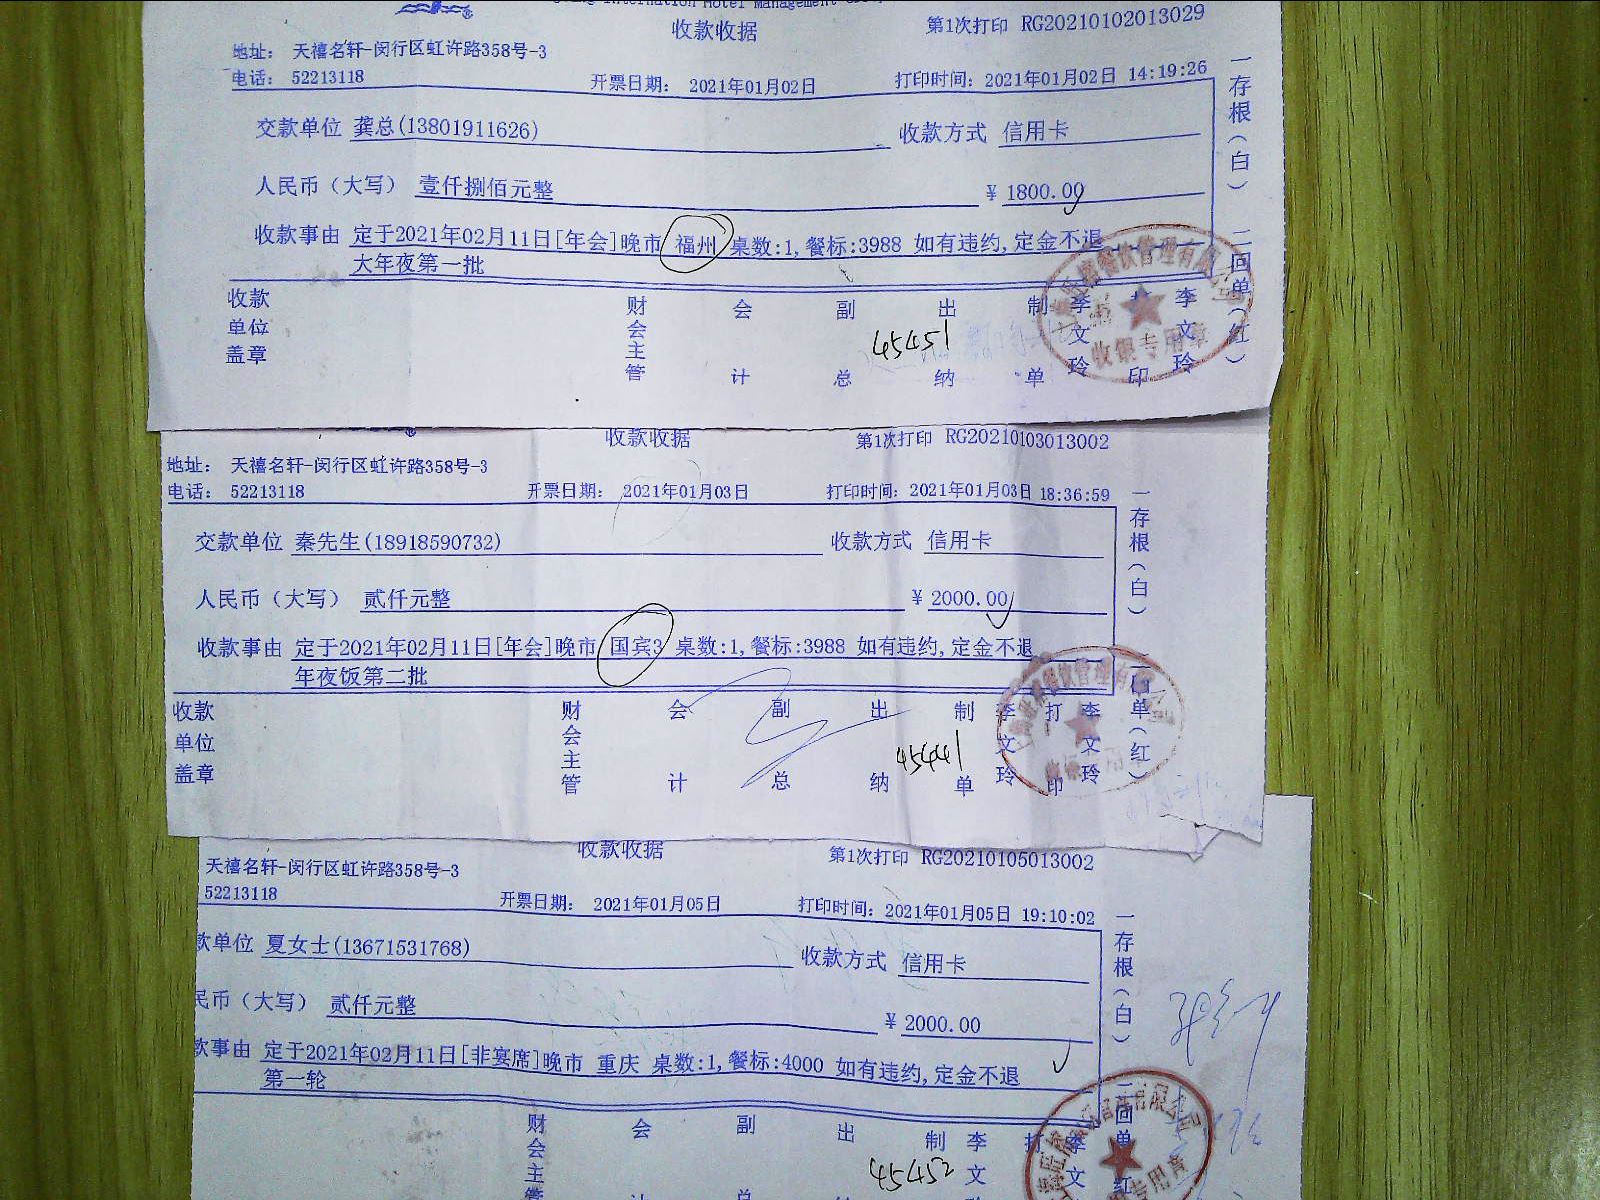 International Hotel Management
收款收据
第1次打印 RG20210102013029
地址： 天禧名轩-闵行区虹许路358号-3
电话： 52213118
开票日期： 2021年01月02日
打印时间：2021年01月02日 14:19:26
交款单位 龚总(13801911626)
收款方式 信用卡
人民币（大写） 壹仟捌佰元整
¥ 1800.00
收款事由 定于2021年02月11日[年会]晚市 福州 桌数:1,餐标:3988 如有违约,定金不退
大年夜第一批
收款单位盖章 财会主管 会计 副总 出纳 制单 李文玲 打印 李文玲
45451
收银专用章
一存根(白) 二回单(红)
收款收据
第1次打印 RG20210103013002
地址： 天禧名轩-闵行区虹许路358号-3
电话： 52213118
开票日期： 2021年01月03日
打印时间：2021年01月03日 18:36:59
交款单位 秦先生(18918590732)
收款方式 信用卡
人民币（大写） 贰仟元整
¥ 2000.00
收款事由 定于2021年02月11日[年会]晚市 国宾3 桌数:1,餐标:3988 如有违约,定金不退
年夜饭第二批
收款单位盖章 财会主管 会计 副总 出纳 制单 李文玲 打印 李文玲
45441
一存根(白) 二回单(红)
收款收据
第1次打印 RG20210105013002
天禧名轩-闵行区虹许路358号-3
52213118
开票日期： 2021年01月05日
打印时间：2021年01月05日 19:10:02
款单位 夏女士(13671531768)
收款方式 信用卡
民币（大写） 贰仟元整
¥ 2000.00
款事由 定于2021年02月11日[非宴席]晚市 重庆 桌数:1,餐标:4000 如有违约,定金不退
第一轮
财会主管 会 副 出 制 李文 打 李文
45452
一存根(白) 二回单(红